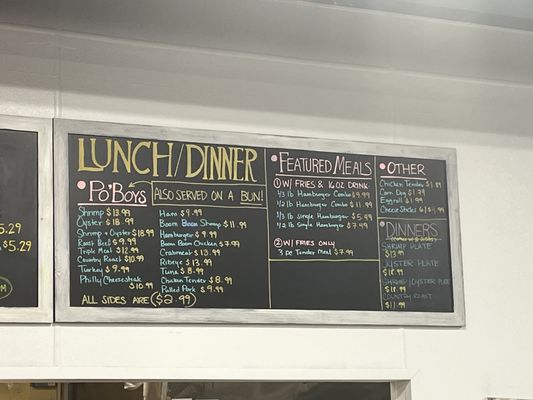 5.29
$5.29
LUNCH/DINNER
PO'BOYS
ALSO SERVED ON A BUN!
Shrimp $13.99
Oyster $18.99
Shrimp + Oyster $18.99
Roast Beef $9.99
Triple Meal $12.99
Country Roast $10.99
Turkey $9.99
Philly Cheesesteak
$10.99
Ham $9.99
Boom Boom Shrimp $11.99
Hamburger $9.99
Boom Boom Chicken $7.99
Crabmeat $13.99
Ribeye $13.99
Tuna $8.99
Chicken Tender $8.99
Pulled Pork $9.99
ALL SIDES ARE $2.99
FEATURED MEALS
① W/ FRIES & 16OZ DRINK
1/3 lb Hamburger Combo $9.99
1/2 lb Hamburger Combo $11.99
1/3 lb Single Hamburger $5.99
1/2 lb Single Hamburger $7.99
② W/ FRIES ONLY
3 pc Tender Meal $7.99
OTHER
Chicken Tender $1.89
Corn Dog $1.79
Eggroll $1.99
Cheese Sticks
DINNERS
SHRIMP PLATE
$13.99
OYSTER PLATE
$18.99
SHRIMP/OYSTER PLATE
$18.99
COUNTRY ROAST
$11.99